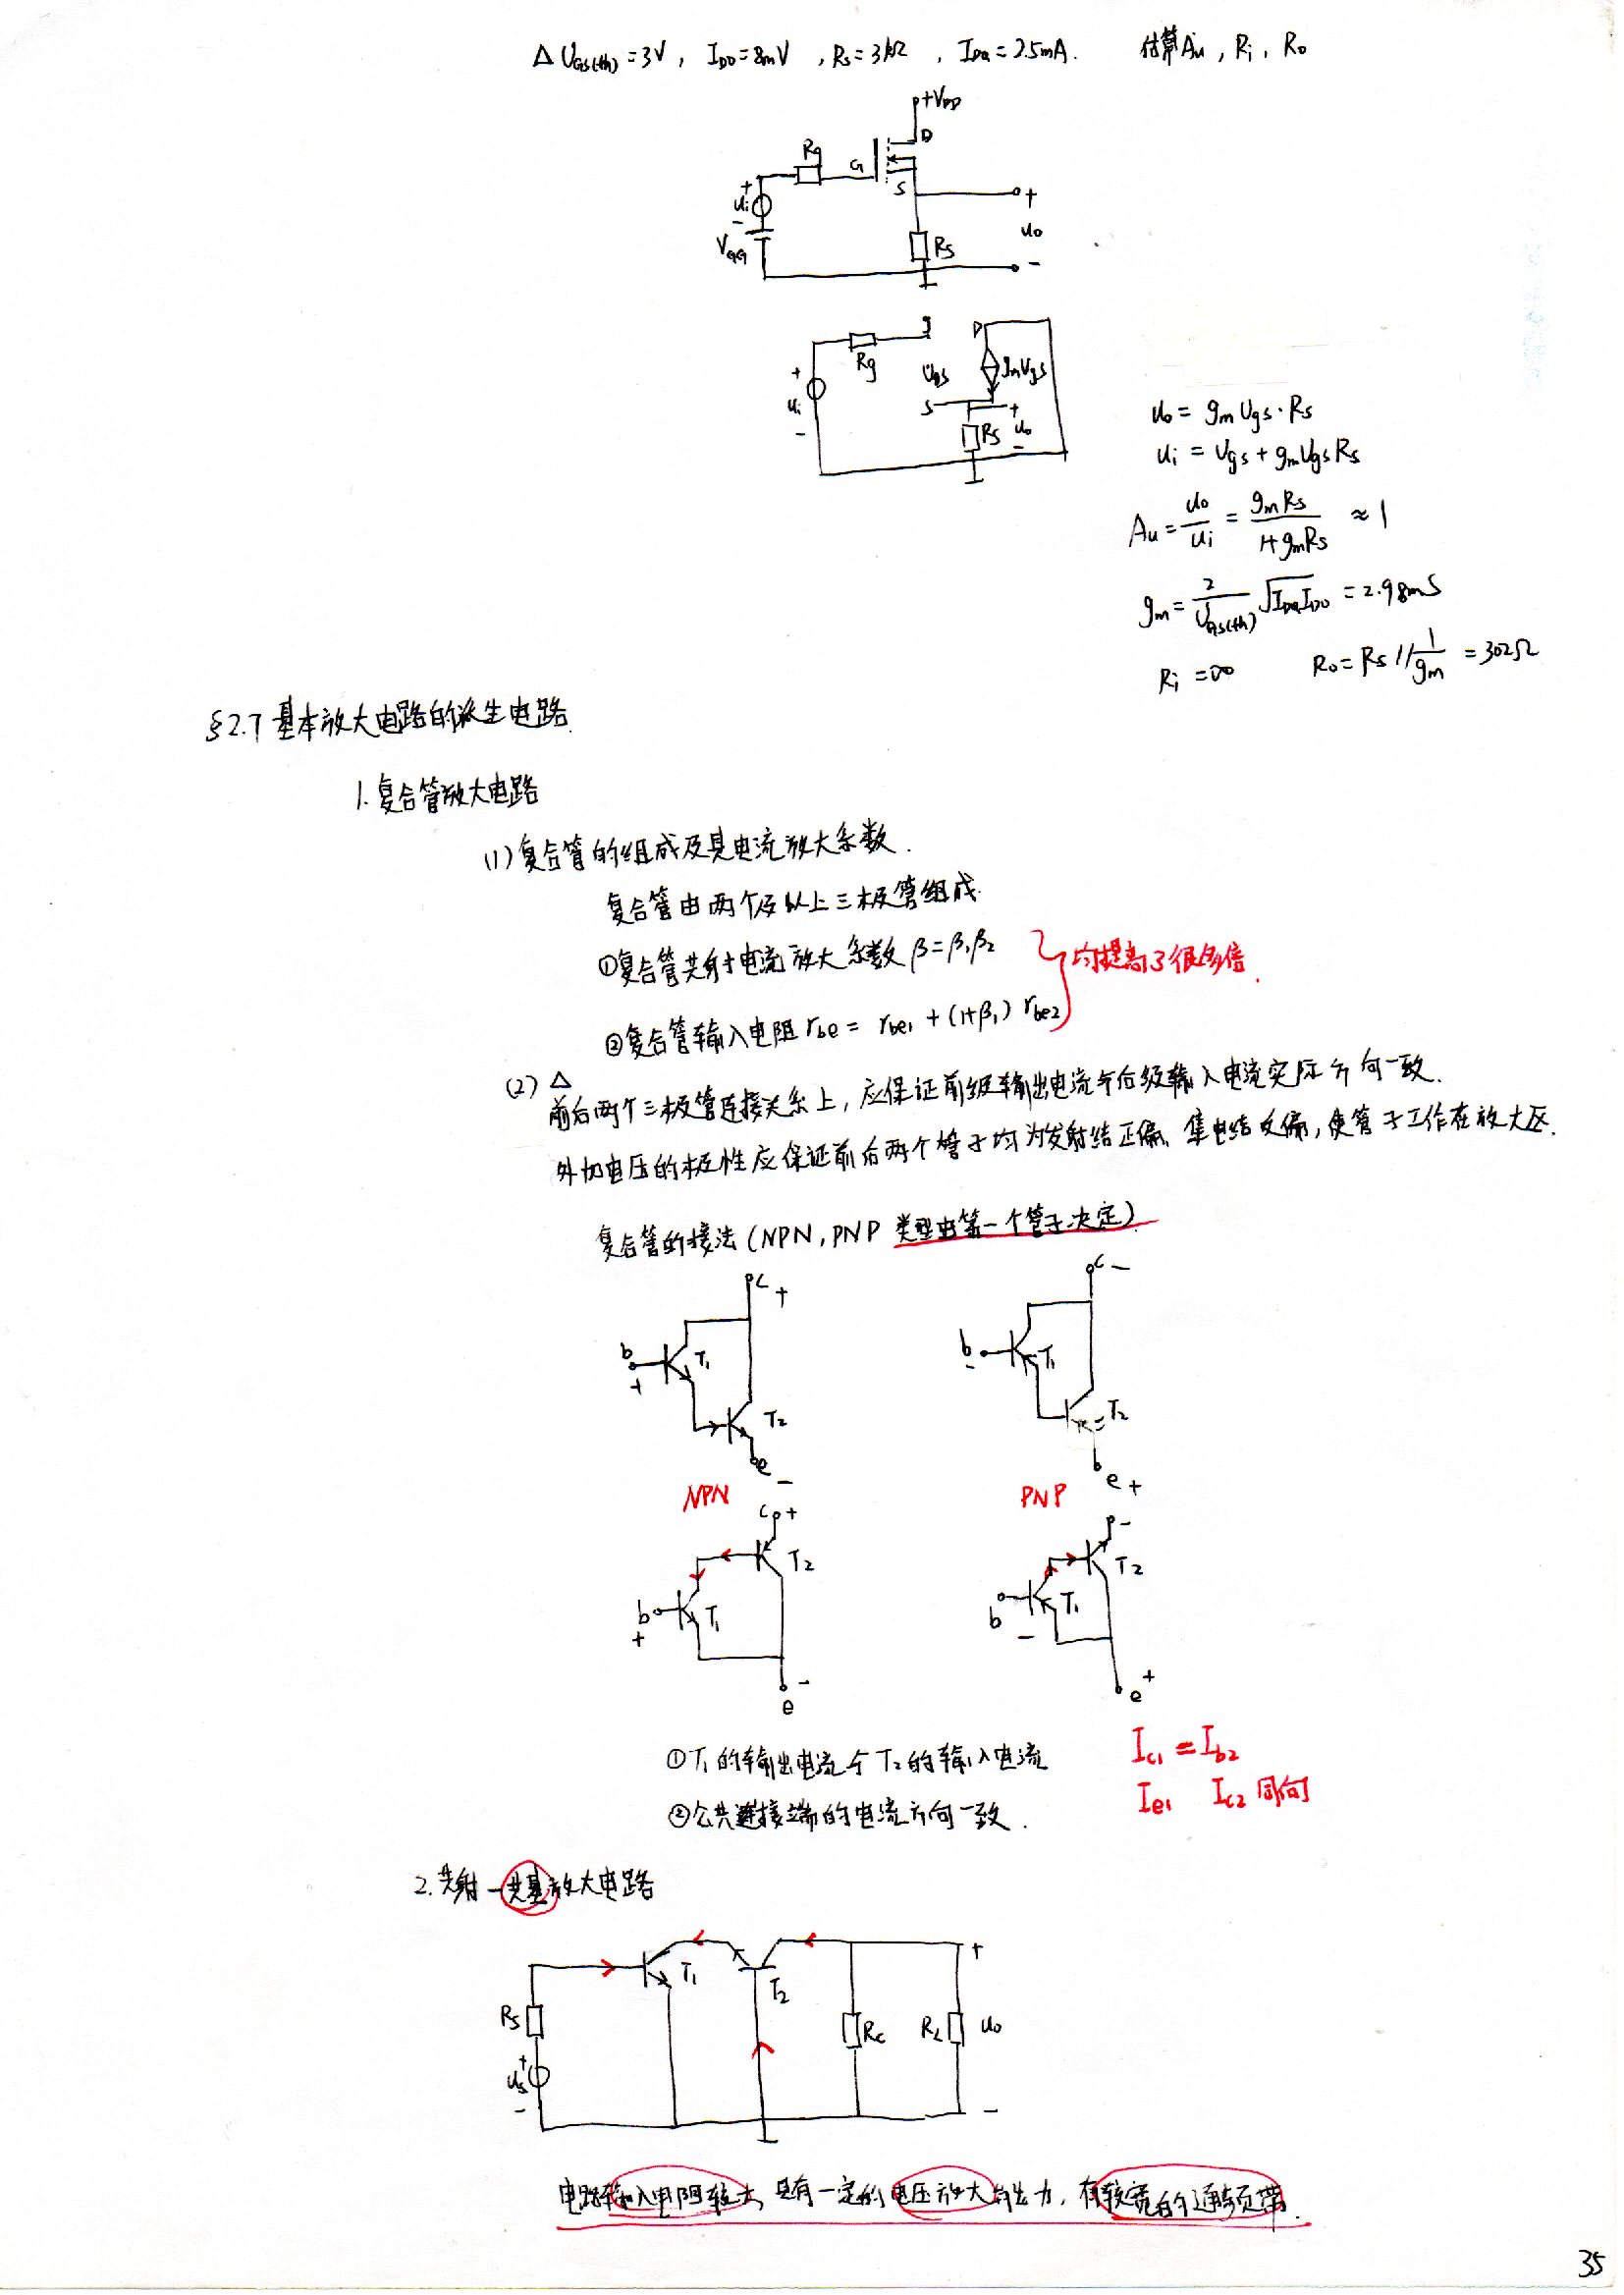 △ UGS(th)=3V, IDO=8mV, Rs=3kΩ, IDQ=2.5mA. 估算Au, Ri, Ro
+VDD
D
Rg
G
S
+
ui
-
VGG
+
uo
-
Rs
g
D
Rg
Ugs
gmVgs
+
ui
-
S
+
uo
-
Rs
uo = gmUgs·Rs
ui = Ugs + gmUgsRs
Au = uo/ui = gmRs/(1+gmRs) ≈ 1
gm = 2/UGS(th) √(IDQIDO) = 2.98mS
Ri = ∞ Ro = Rs // 1/gm = 302Ω
§2.7 基本放大电路的派生电路.
1. 复合管放大电路
(1) 复合管的组成及其电流放大系数.
复合管由两个及以上三极管组成.
①复合管共射电流放大系数 β=β1β2
均提高了很多倍.
②复合管输入电阻 rbe = rbe1 + (1+β1) rbe2
(2) △ 前后两个三极管连接关系上, 应保证前级输出电流与后级输入电流实际方向一致.
外加电压的极性应保证前后两个管子均为发射结正偏、集电结反偏, 使管子工作在放大区.
复合管的接法 (NPN, PNP 类型由第一个管子决定)
c +
b
+
T1
T2
e -
NPN
c -
b
-
T1
T2
e +
PNP
c +
T2
b
+
T1
-
e
-
T2
b
-
T1
+
e
①T1的输出电流与T2的输入电流
Ic1 = Ib2
②公共连接端的电流方向一致.
Ie1 Ic2 同向
2. 共射-共基放大电路
T1
T2
+
Rs
+
us
-
Rc
RL
uo
-
电路输入电阻较大, 具有一定的电压放大能力, 有较宽的通频带.
35